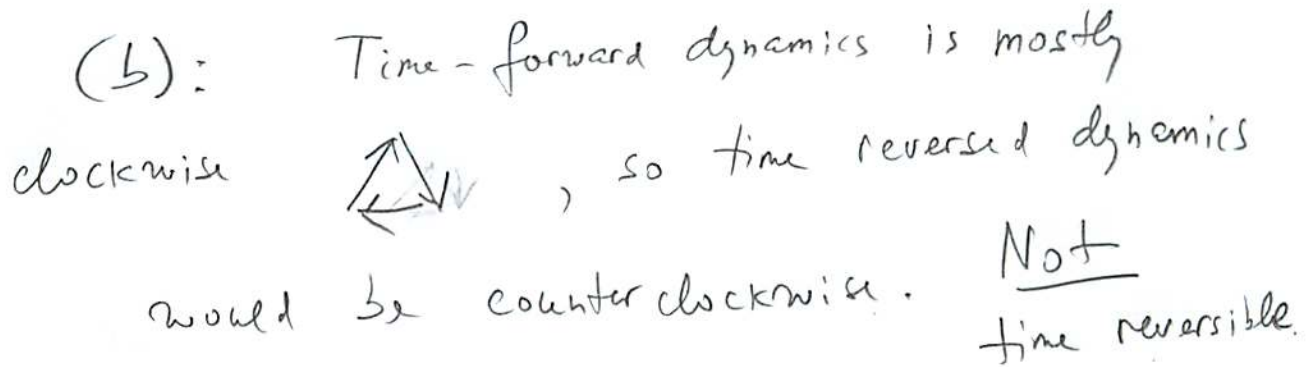 (b): Time-forward dynamics is mostly
clockwise , so time reversed dynamics
would be counter clockwise. Not
time reversible.